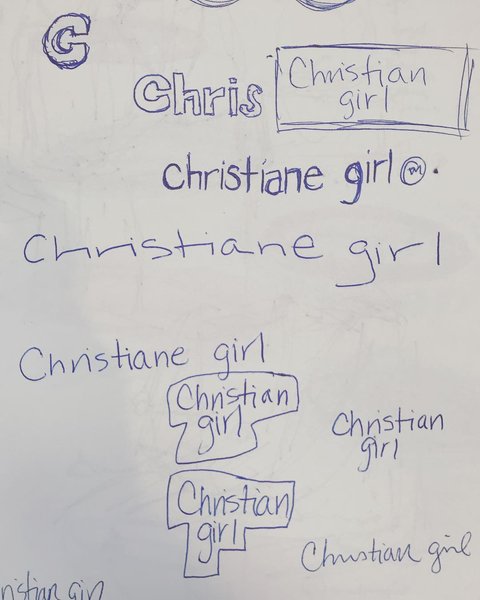 C
Chris
Christian
girl
christiane girl TM.
Christiane girl
Christiane girl
Christian
girl
Christian
girl
Christian
girl
Christian girl
ristian girl